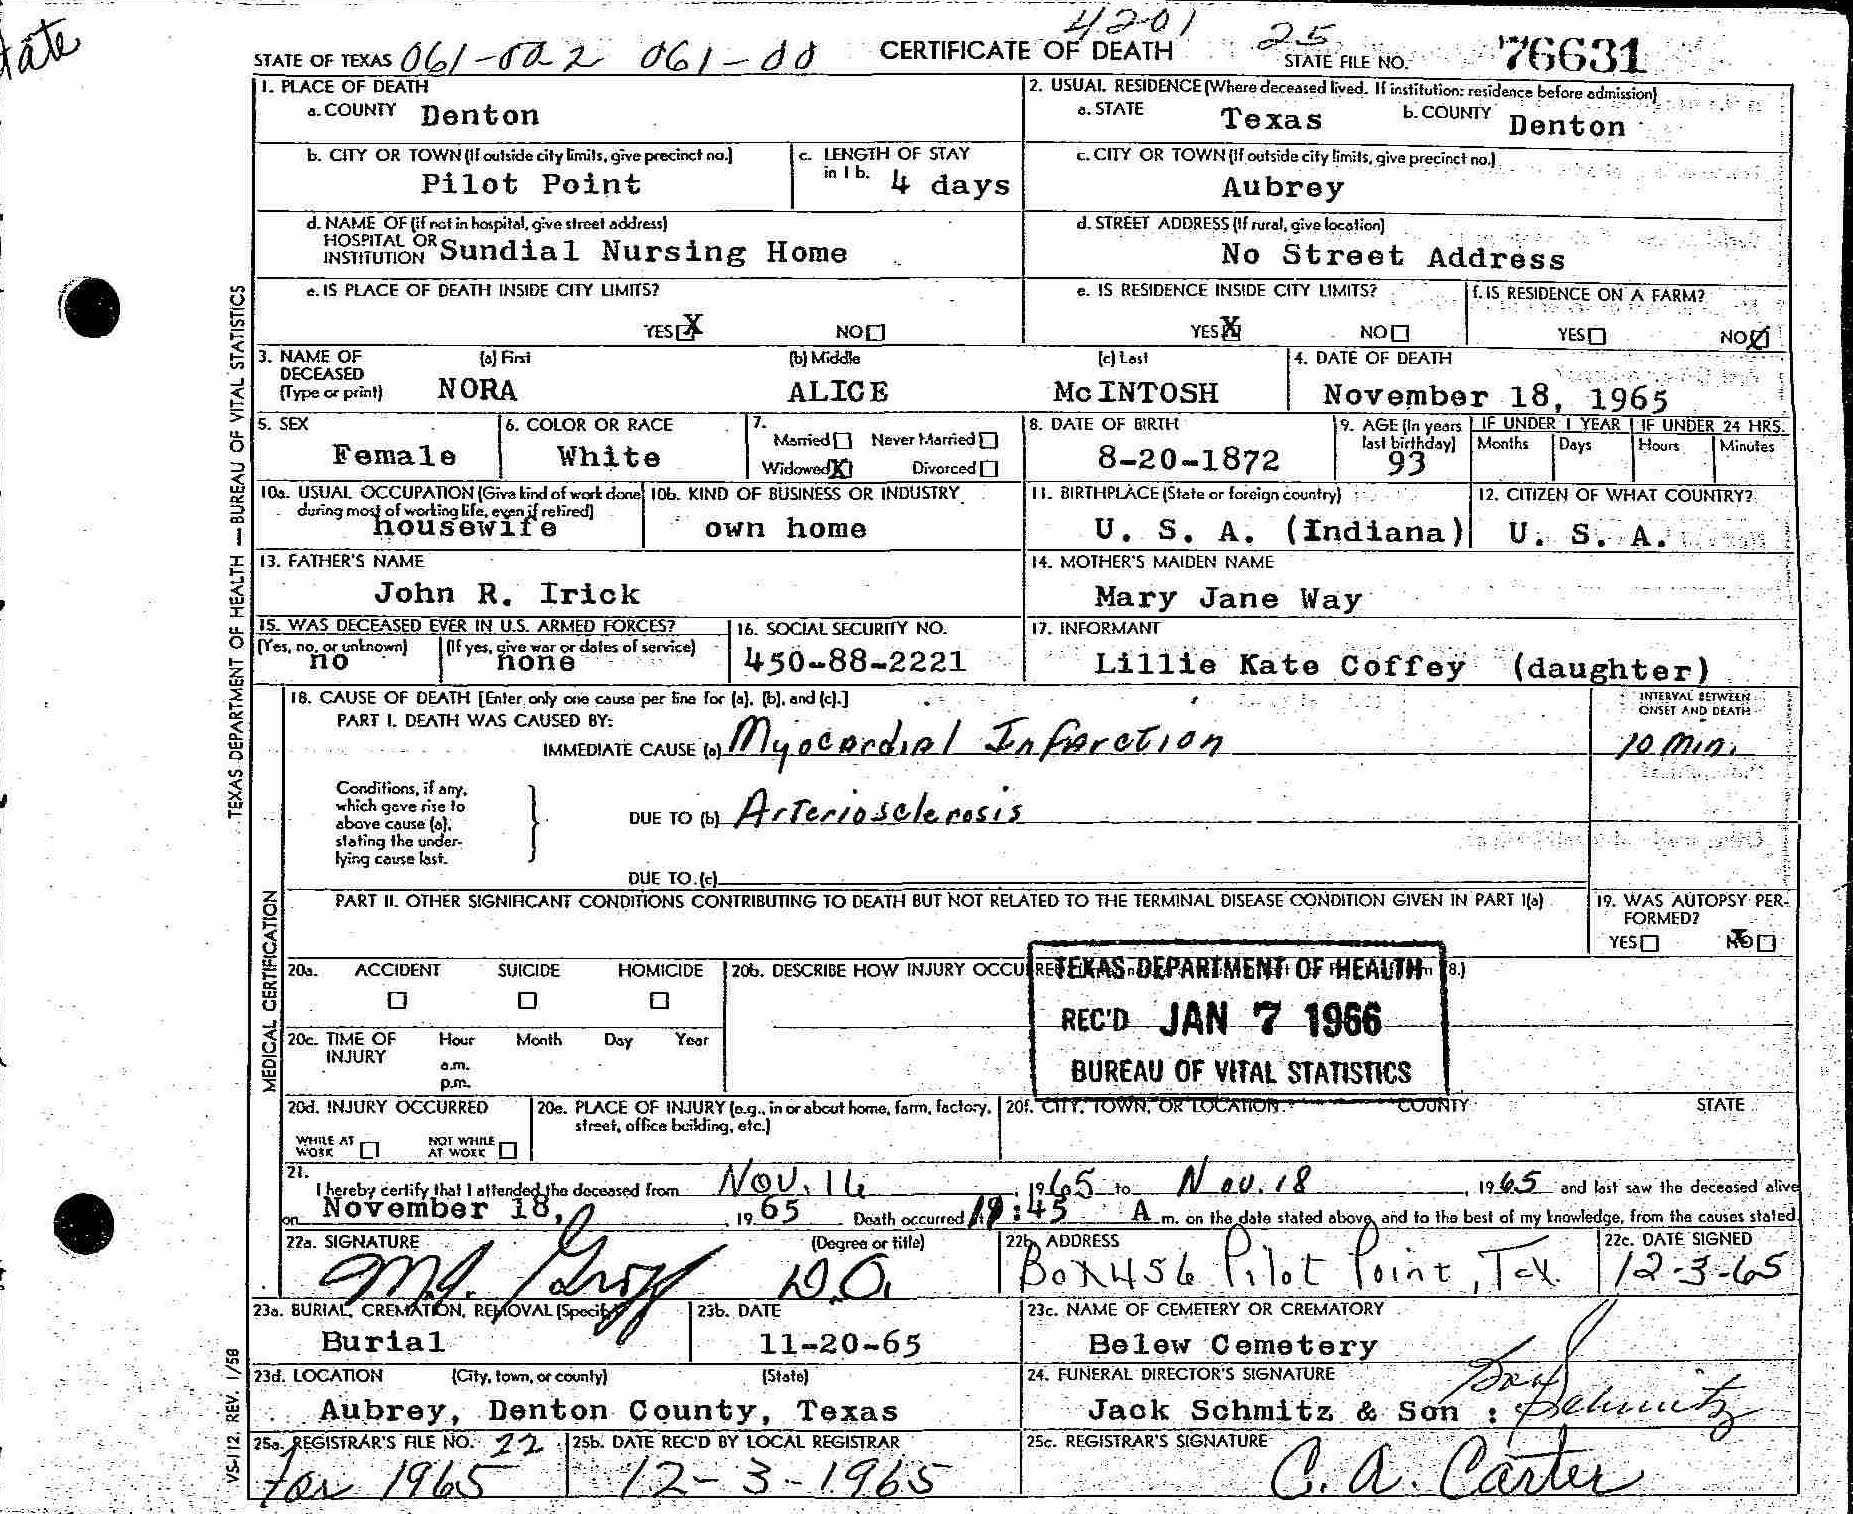 tate
4201
STATE OF TEXAS 061-002 061-00 CERTIFICATE OF DEATH 25 STATE FILE NO. 76631
1. PLACE OF DEATH
a. COUNTY Denton
2. USUAL RESIDENCE (Where deceased lived. If institution: residence before admission)
a. STATE Texas b. COUNTY Denton
b. CITY OR TOWN (If outside city limits, give precinct no.) Pilot Point
c. LENGTH OF STAY in 1 b. 4 days
c. CITY OR TOWN (If outside city limits, give precinct no.) Aubrey
d. NAME OF (If not in hospital, give street address)
HOSPITAL OR
INSTITUTION Sundial Nursing Home
d. STREET ADDRESS (If rural, give location)
No Street Address
e. IS PLACE OF DEATH INSIDE CITY LIMITS?
YES X NO
e. IS RESIDENCE INSIDE CITY LIMITS?
YES X NO
f. IS RESIDENCE ON A FARM?
YES NO X
3. NAME OF DECEASED (Type or print)
(a) First (b) Middle (c) Last
NORA ALICE McINTOSH
4. DATE OF DEATH
November 18, 1965
5. SEX
Female
6. COLOR OR RACE
White
7. Married Never Married
Widowed X Divorced
8. DATE OF BIRTH
8-20-1872
9. AGE (In years last birthday)
93
IF UNDER 1 YEAR IF UNDER 24 HRS.
Months Days Hours Minutes
10a. USUAL OCCUPATION (Give kind of work done during most of working life, even if retired)
housewife
10b. KIND OF BUSINESS OR INDUSTRY
own home
11. BIRTHPLACE (State or foreign country)
U. S. A. (Indiana)
12. CITIZEN OF WHAT COUNTRY?
U. S. A.
13. FATHER'S NAME
John R. Irick
14. MOTHER'S MAIDEN NAME
Mary Jane Way
15. WAS DECEASED EVER IN U.S. ARMED FORCES?
(Yes, no, or unknown) no (If yes, give war or dates of service) none
16. SOCIAL SECURITY NO.
450-88-2221
17. INFORMANT
Lillie Kate Coffey (daughter)
18. CAUSE OF DEATH [Enter only one cause per line for (a), (b), and (c).]
PART I. DEATH WAS CAUSED BY:
INTERVAL BETWEEN ONSET AND DEATH
IMMEDIATE CAUSE (a) Myocardial Infarction 10 min.
Conditions, if any, which gave rise to above cause (a), stating the underlying cause last.
DUE TO (b) Arteriosclerosis
DUE TO (c)
PART II. OTHER SIGNIFICANT CONDITIONS CONTRIBUTING TO DEATH BUT NOT RELATED TO THE TERMINAL DISEASE CONDITION GIVEN IN PART I(a)
19. WAS AUTOPSY PERFORMED?
YES NO
20a. ACCIDENT SUICIDE HOMICIDE
20b. DESCRIBE HOW INJURY OCCURRED
TEXAS DEPARTMENT OF HEALTH
REC'D JAN 7 1966
BUREAU OF VITAL STATISTICS
20c. TIME OF INJURY Hour Month Day Year
a.m.
p.m.
20d. INJURY OCCURRED
WHILE AT WORK NOT WHILE AT WORK
20e. PLACE OF INJURY (e.g., in or about home, farm, factory, street, office building, etc.)
20f. CITY, TOWN, OR LOCATION COUNTY STATE
21. I hereby certify that I attended the deceased from Nov. 16, 1965 to Nov. 18, 1965 and last saw the deceased alive
on November 18, 1965 Death occurred :45 A m. on the date stated above, and to the best of my knowledge, from the causes stated
22a. SIGNATURE (Degree or title)
D.O.
22b. ADDRESS
Box 456 Pilot Point, Tex.
22c. DATE SIGNED
12-3-65
23a. BURIAL, CREMATION, REMOVAL (Specify)
Burial
23b. DATE
11-20-65
23c. NAME OF CEMETERY OR CREMATORY
Belew Cemetery
23d. LOCATION (City, town, or county) (State)
Aubrey, Denton County, Texas
24. FUNERAL DIRECTOR'S SIGNATURE
Jack Schmitz & Son : Schmitz
25a. REGISTRAR'S FILE NO. 22
for 1965
25b. DATE REC'D BY LOCAL REGISTRAR
12-3-1965
25c. REGISTRAR'S SIGNATURE
C. A. Carter
TEXAS DEPARTMENT OF HEALTH — BUREAU OF VITAL STATISTICS
MEDICAL CERTIFICATION
VS-112 REV. 1/58